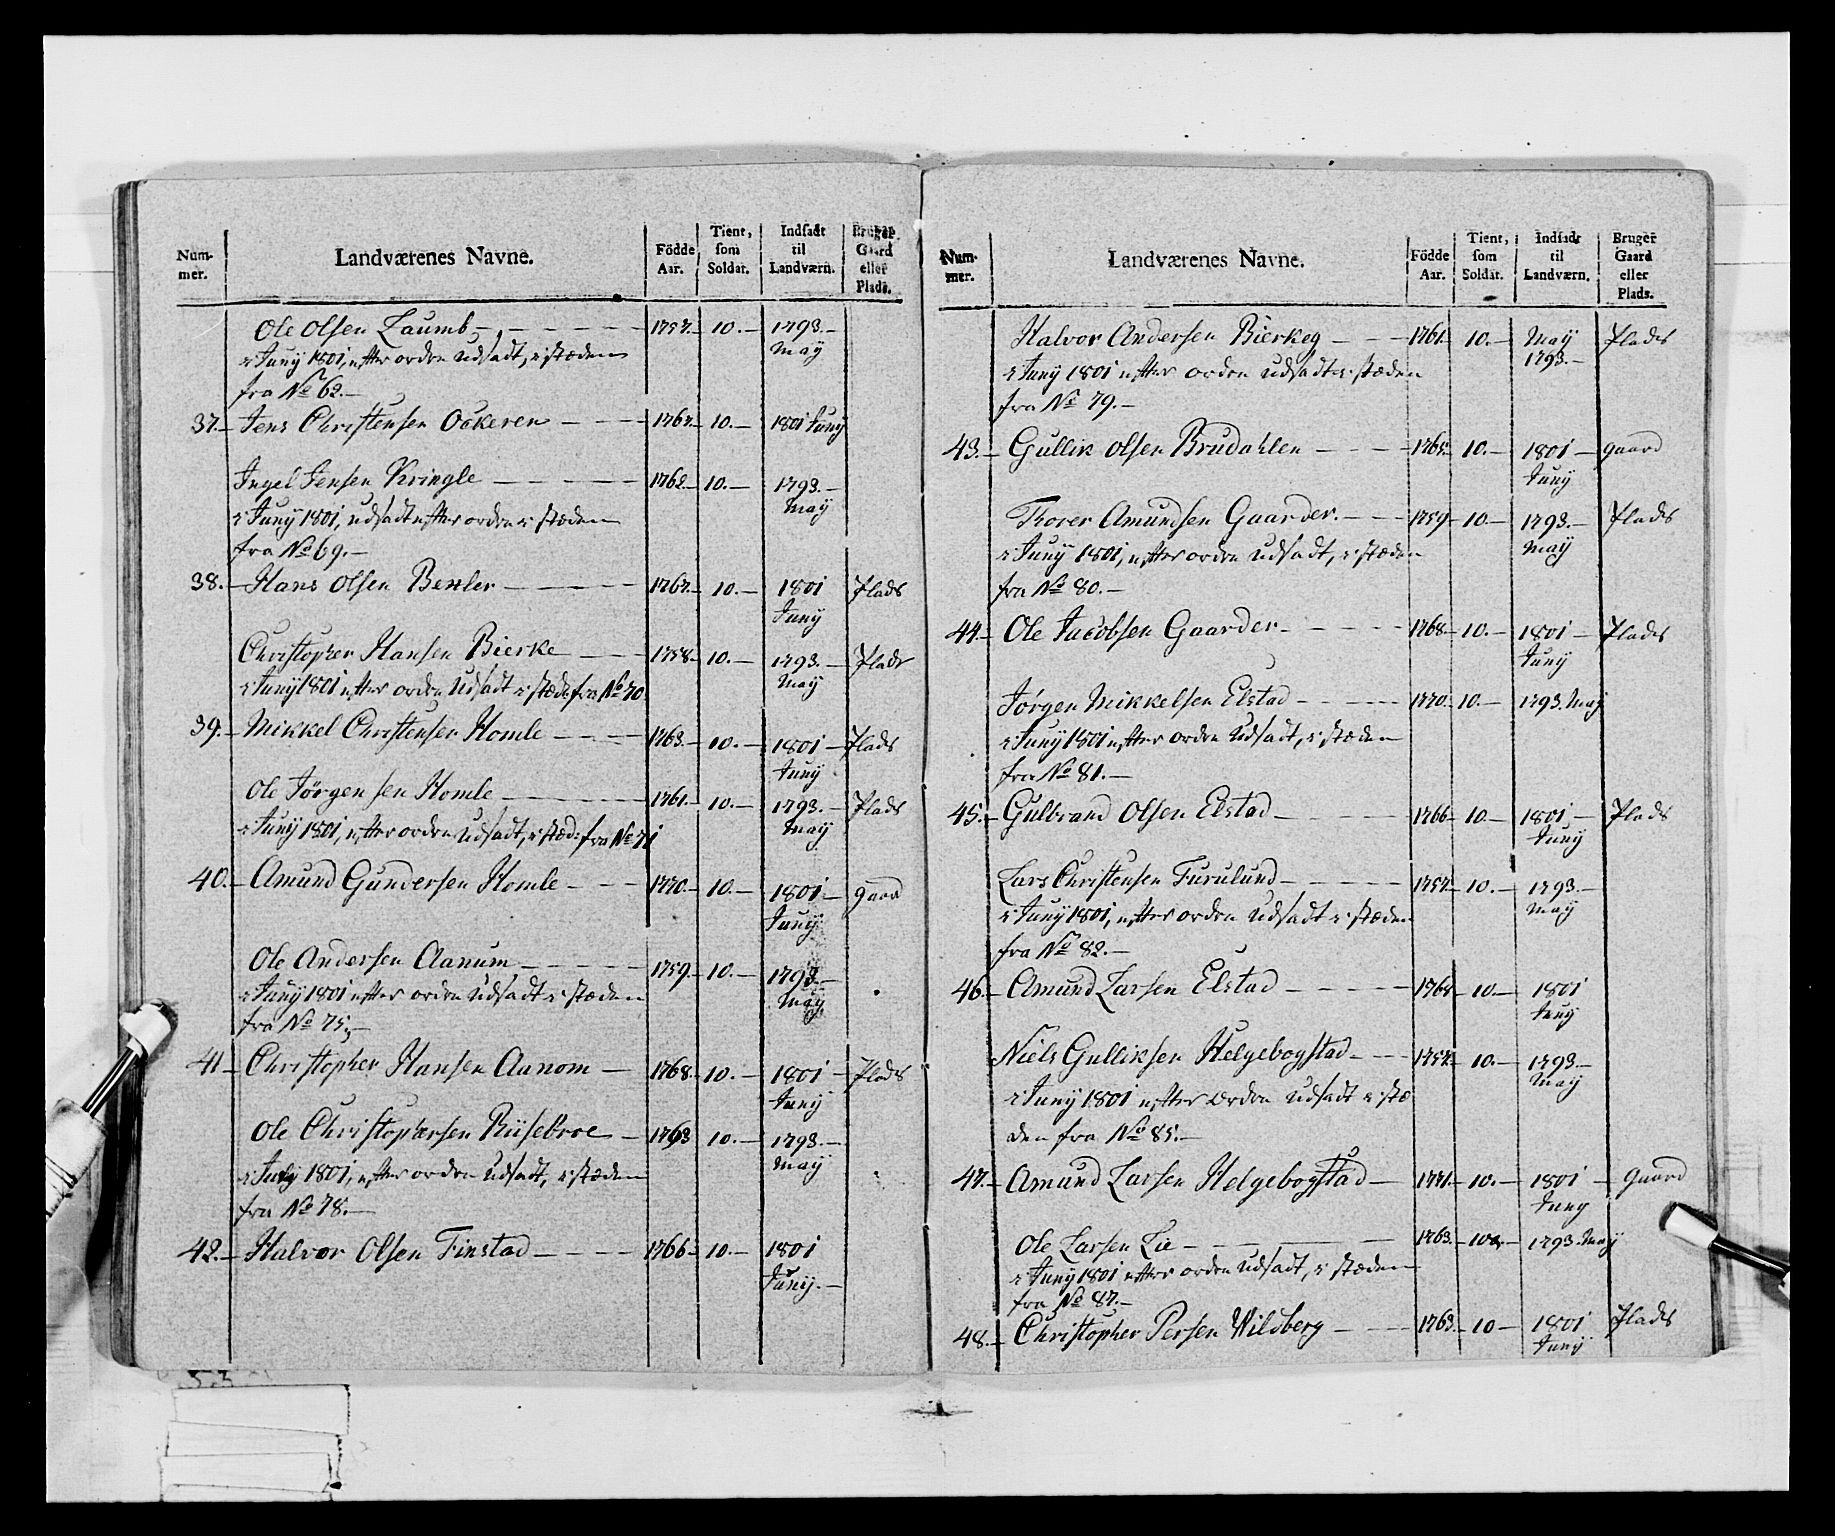 Num-
mer.
Landværenes Navne.
Födde
Aar.
Tient,
som
Soldat.
Indsadt
til
Landværn.
Bruger
Gaard
eller
Plads.
Ole Olsen Laumb - - - - - 1757.- 10.- 1793.-
May
i Juny 1801, efter ordre Udsadt, i stæden
fra No 62.-
37.- Jens Christensen Ockeren - - - 1767.- 10.- 1801 Juny
Ingel Jensen Kringle - - - - 1762.- 10.- 1793.-
May
i Juny 1801, udsadt efter ordre i stæden
fra No 69.-
38.- Hans Olsen Bexler - - - - 1767.- 10.- 1801 Plads
Juny
Christopher Hansen Bierke - - - 1758.- 10.- 1793.- Plads
May
i Juny 1801 efter ordre Udsadt i stæde fra No 70
39.- Mikkel Christensen Homle - - - 1763.- 10.- 1801 - Plads
Juny
Ole Jørgensen Homle - - - - 1761.- 10.- 1793.- Plads
May
i Juny 1801, efter ordre Udsadt, i stæd: fra No 71
40.- Amund Gundersen Homle - - - 1770.- 10.- 1801 - gaard
Juny
Ole Andersen Aanum - - - - 1759.- 10.- 1793.-
May
i Juny 1801 efter ordre Udsadt i stæden
fra No 75,-
41 - Christopher Hansen Aanom - 1768.- 10.- 1801 - Plads
Juny
Ole Christophersen Riisebroe - 1763 10.- 1793.-
May
i July 1801, efter ordre Udsadt, i stæden
fra No 78.-
42.- Halvor Olsen Finstad - - - - 1766.- 10.- 1801
Juny.-
Num-
mer.
Landværenes Navne.
Födde
Aar.
Tient,
som
Soldat.
Indsadt
til
Landværn.
Bruger
Gaard
eller
Plads.
Halvor Andersen Bierkeg - - - 1761.- 10.- May Plads
1793.-
i Juny 1801 efter ordre Udsadt i stæden
fra No 79.-
43.- Gullik Olsen Brudahlen - - - 1765.- 10.- 1801 - gaard
Juny
Thorer Amundsen Gaarder.- - - 1759.- 10.- 1793.- Plads
May
i Juny 1801, efter ordre Udsadt, i stæden
fra No 80.-
44.- Ole Jacobsen Gaarder - - - - 1768.- 10.- 1801 - Plads
Juny
Jørgen Mikkelsen Elstad - - - 1770.- 10.- 1793. May
i Juny 1801 efter ordre Udsadt, i stæden
fra No 81.-
45.- Gulbrand Olsen Elstad - - - - 1766.- 10.- 1801 - Plads
Juny
Lars Christensen Furulund - - - 1757.- 10.- 1793.-
May
i Juny 1801, efter ordre Udsadt i stæden
fra No 82.-
46.- Amund Larsen Elstad - - - - 1768 - 10.- 1801
Juny
Niels Gulliksen Helgebogstad - - - 1757.- 10.- 1793.-
May
i Juny 1801 efter Ordre Udsadt i stæ
den fra No 85.-
47.- Amund Larsen Helgebogstad - 1771.- 10.- 1801 - gaard
Juny
Ole Larsen Lie - - - - 1763.- 10.- 1793. May
i Juny 1801 efter ordre Udsadt, i stæden
fra No 87.-
48.- Christopher Persen Wildberg - - - 1763.- 10 - 1801 Plads
Juny